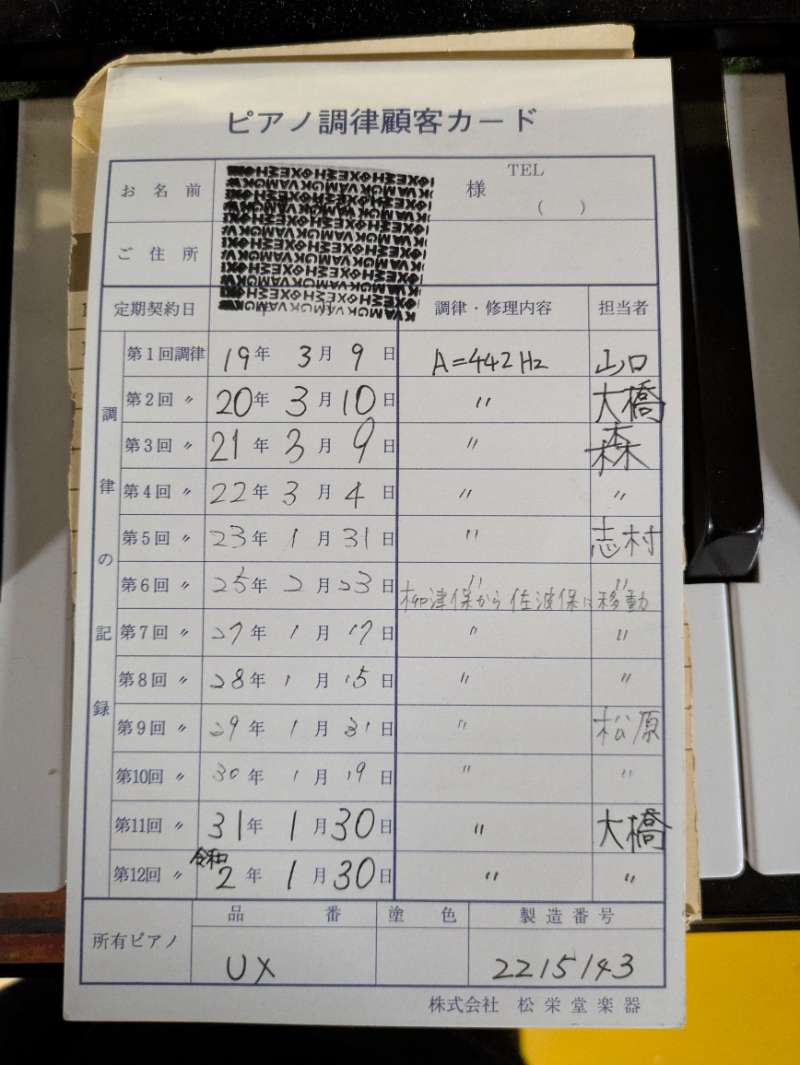 ピアノ調律顧客カード
お名前 様 TEL ( )
ご住所
定期契約日 調律・修理内容 担当者
調律の記録
第1回調律 19年 3月 9日 A=442Hz 山口
第2回〃 20年 3月 10日 〃 大橋
第3回〃 21年 3月 9日 〃 森
第4回〃 22年 3月 4日 〃 〃
第5回〃 23年 1月 31日 〃 志村
第6回〃 25年 2月 23日 〃 〃
柳津保から佐波保に移動
第7回〃 27年 1月 17日 〃 〃
第8回〃 28年 1月 15日 〃 〃
第9回〃 29年 1月 31日 〃 松原
第10回〃 30年 1月 19日 〃 〃
第11回〃 31年 1月 30日 〃 大橋
第12回〃 令和2年 1月 30日 〃 〃
所有ピアノ 品番 塗色 製造番号
UX 2215143
株式会社 松栄堂楽器